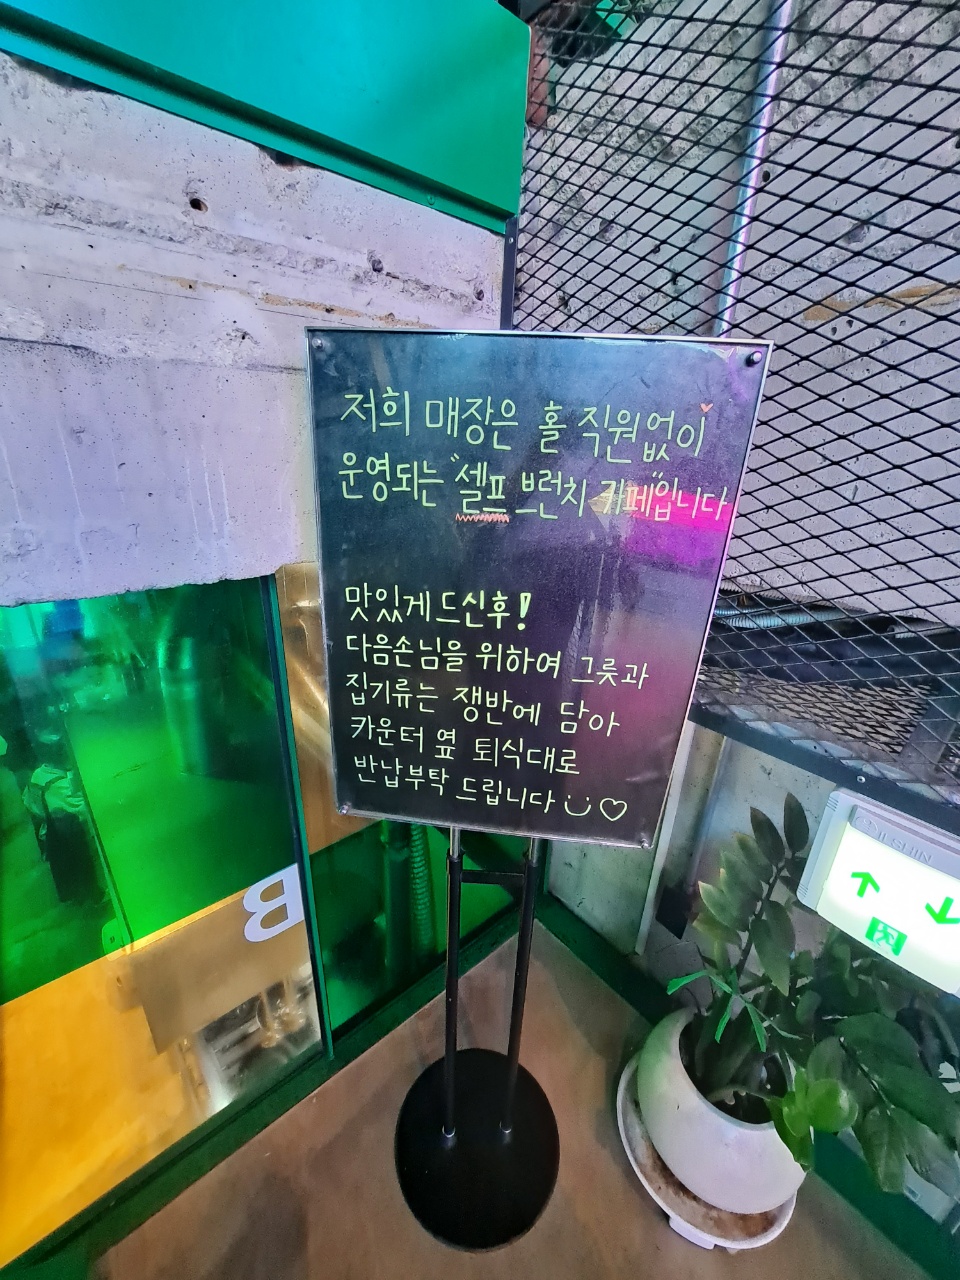 저희 매장은 홀 직원없이
운영되는 "셀프 브런치 카페"입니다
맛있게 드신후!
다음손님을 위하여 그릇과
집기류는 쟁반에 담아
카운터 옆 퇴식대로
반납부탁 드립니다
B
ILSHIN